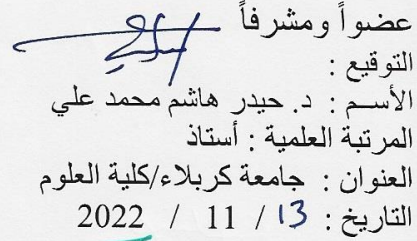 عضواً ومشرفاً
التوقيع :
الأسم : د. حيدر هاشم محمد علي
المرتبة العلمية : أستاذ
العنوان : جامعة كربلاء/كلية العلوم
التاريخ : 13 / 11 / 2022